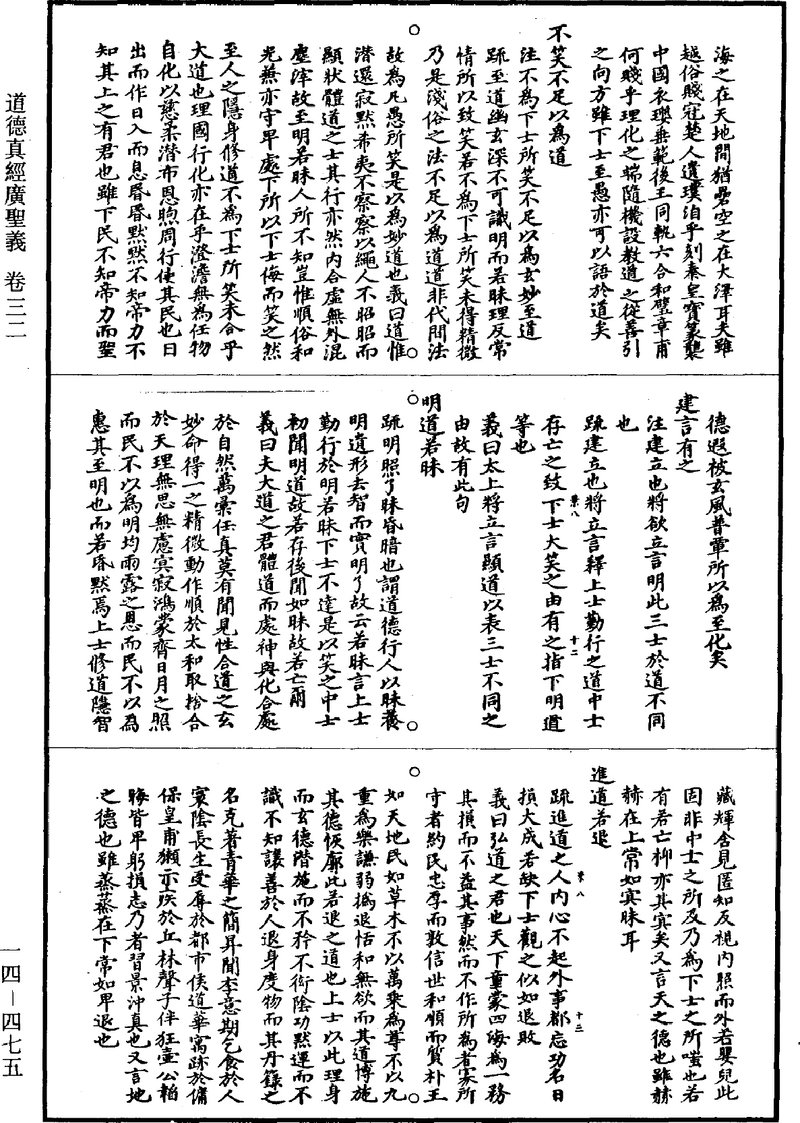 道德真經廣聖義　卷三二
海之在天地間猶礨空之在大澤耳夫雖
越俗賤冠楚人遺璞洎乎刻秦皇寶篆襲
中國衣瓔垂範後王同軌六合和璧章甫
何賤乎理化之歸隨機設教道之從善引
之向方雖下士至愚亦可以語於道矣
不笑不足以為道
注不為下士所笑不足以為玄妙至道
疏至道幽玄深不可識明而若昧理反常
情所以致笑若不為下士所笑未得精微
乃是淺俗之法不足以為道道非代間法
故為凡愚所笑是以為妙道也義曰道惟
潛還寂默希夷不察察以繩人不昭昭而
顯狀體道之士其行亦然內合虛無外混
塵滓故至明若昧人所不知豈惟順俗和
光兼亦守卑處下所以下士侮而笑之然
至人之隱身修道不為下士所笑未合乎
大道也理國行化亦在乎澄澹無為任物
自化以慈柔潛布恩煦周行使其民也日
出而作日入而息昏昏默默不知帝力不
知其上之有君也雖下民不知帝力而聖
德遐被玄風普覃所以為至化矣
建言有之
注建立也將欲立言明此三士於道不同
也
疏建立也將立言釋上士勤行之道中士
存亡之致下士大笑之由有之指下明道
等也
義曰太上將立言顯道以表三士不同之
由故有此句
明道若昧
疏明照了昧昏暗也謂道德行人以昧養
明遺形去智而實明了故云若昧言上士
勤行於明若昧下士不達是以笑之中士
初聞明道故若存後聞如昧故若亡爾
義曰夫大道之君體道而處神與化合處
於自然萬彙任真莫有聞見性合道之玄
妙命得一之精微動作順於太和取捨合
於天理無思無慮冥寂鴻蒙齊日月之照
而民不以為明均雨露之恩而民不以為
惠其至明也而若昏默焉上士修道隱智
藏輝含見匿知反視內照而外若嬰兒此
固非中士之所及乃為下士之所嗤也若
有若亡抑亦其宜矣又言天之德也雖赫
赫在上常如寘昧耳
進道若退
疏進道之人內心不起外事都忘功名日
損大成若缺下士觀之似如退敗
義曰弘道之君也天下童蒙四海為一務
其損而不益其事然而不作所為者家所
守者約民忠孝而敦信世和順而質朴王
如天地民如草木不以萬乘為尊不以九
重為樂謙弱撝退恬和無欲而其道博施
其德恢廓此若退之道也上士以此理身
而玄德階施而不矜不衒陰功默運而不
識不知讓善於人退身度物而其丹籙之
名克著青華之簡昇聞李意期乞食於人
寰陰長生受辱於都市侯道華寓跡於傭
保皇甫獺示疾於丘林聲子伴狂壺公韜
晦皆卑躬損志乃者習景沖真也又言地
之德也雖蒸蒸在下常如卑退也
一四－四七五